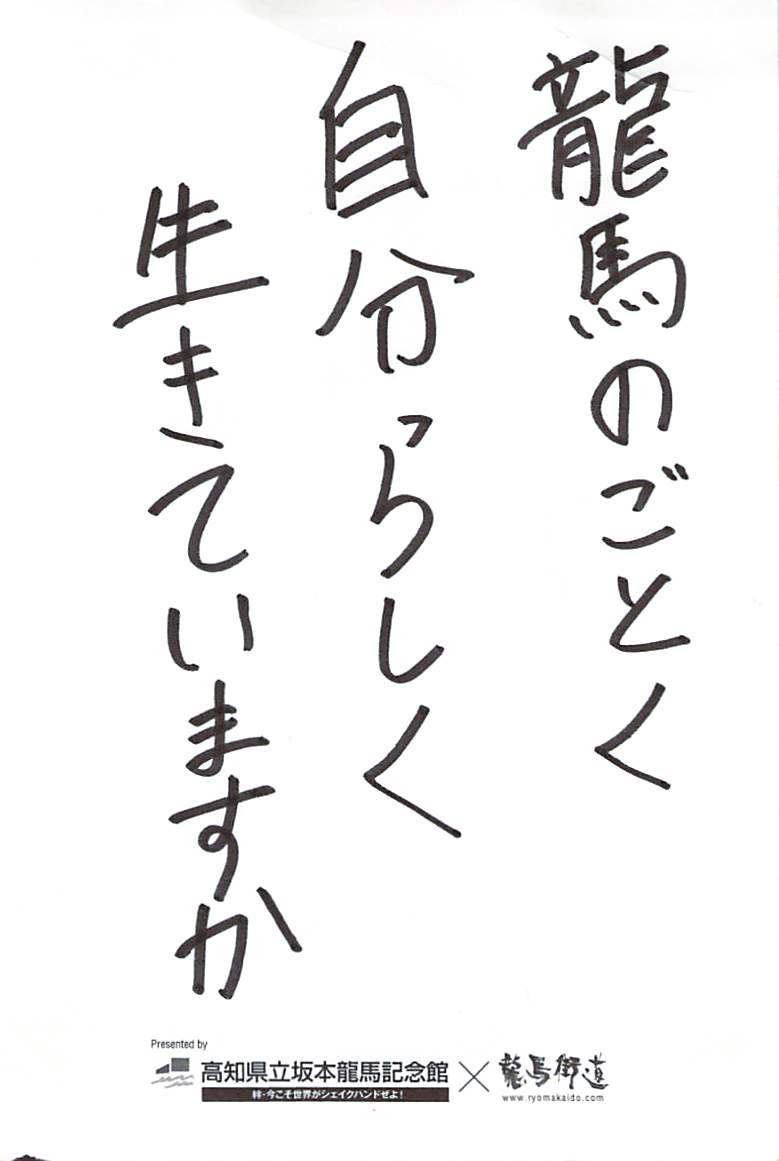 龍馬のごとく
自分らしく
生きていますか
Presented by
高知県立坂本龍馬記念館 × 龍馬街道
絆・今こそ世界がシェイクハンドぜよ！
www.ryomakaido.com